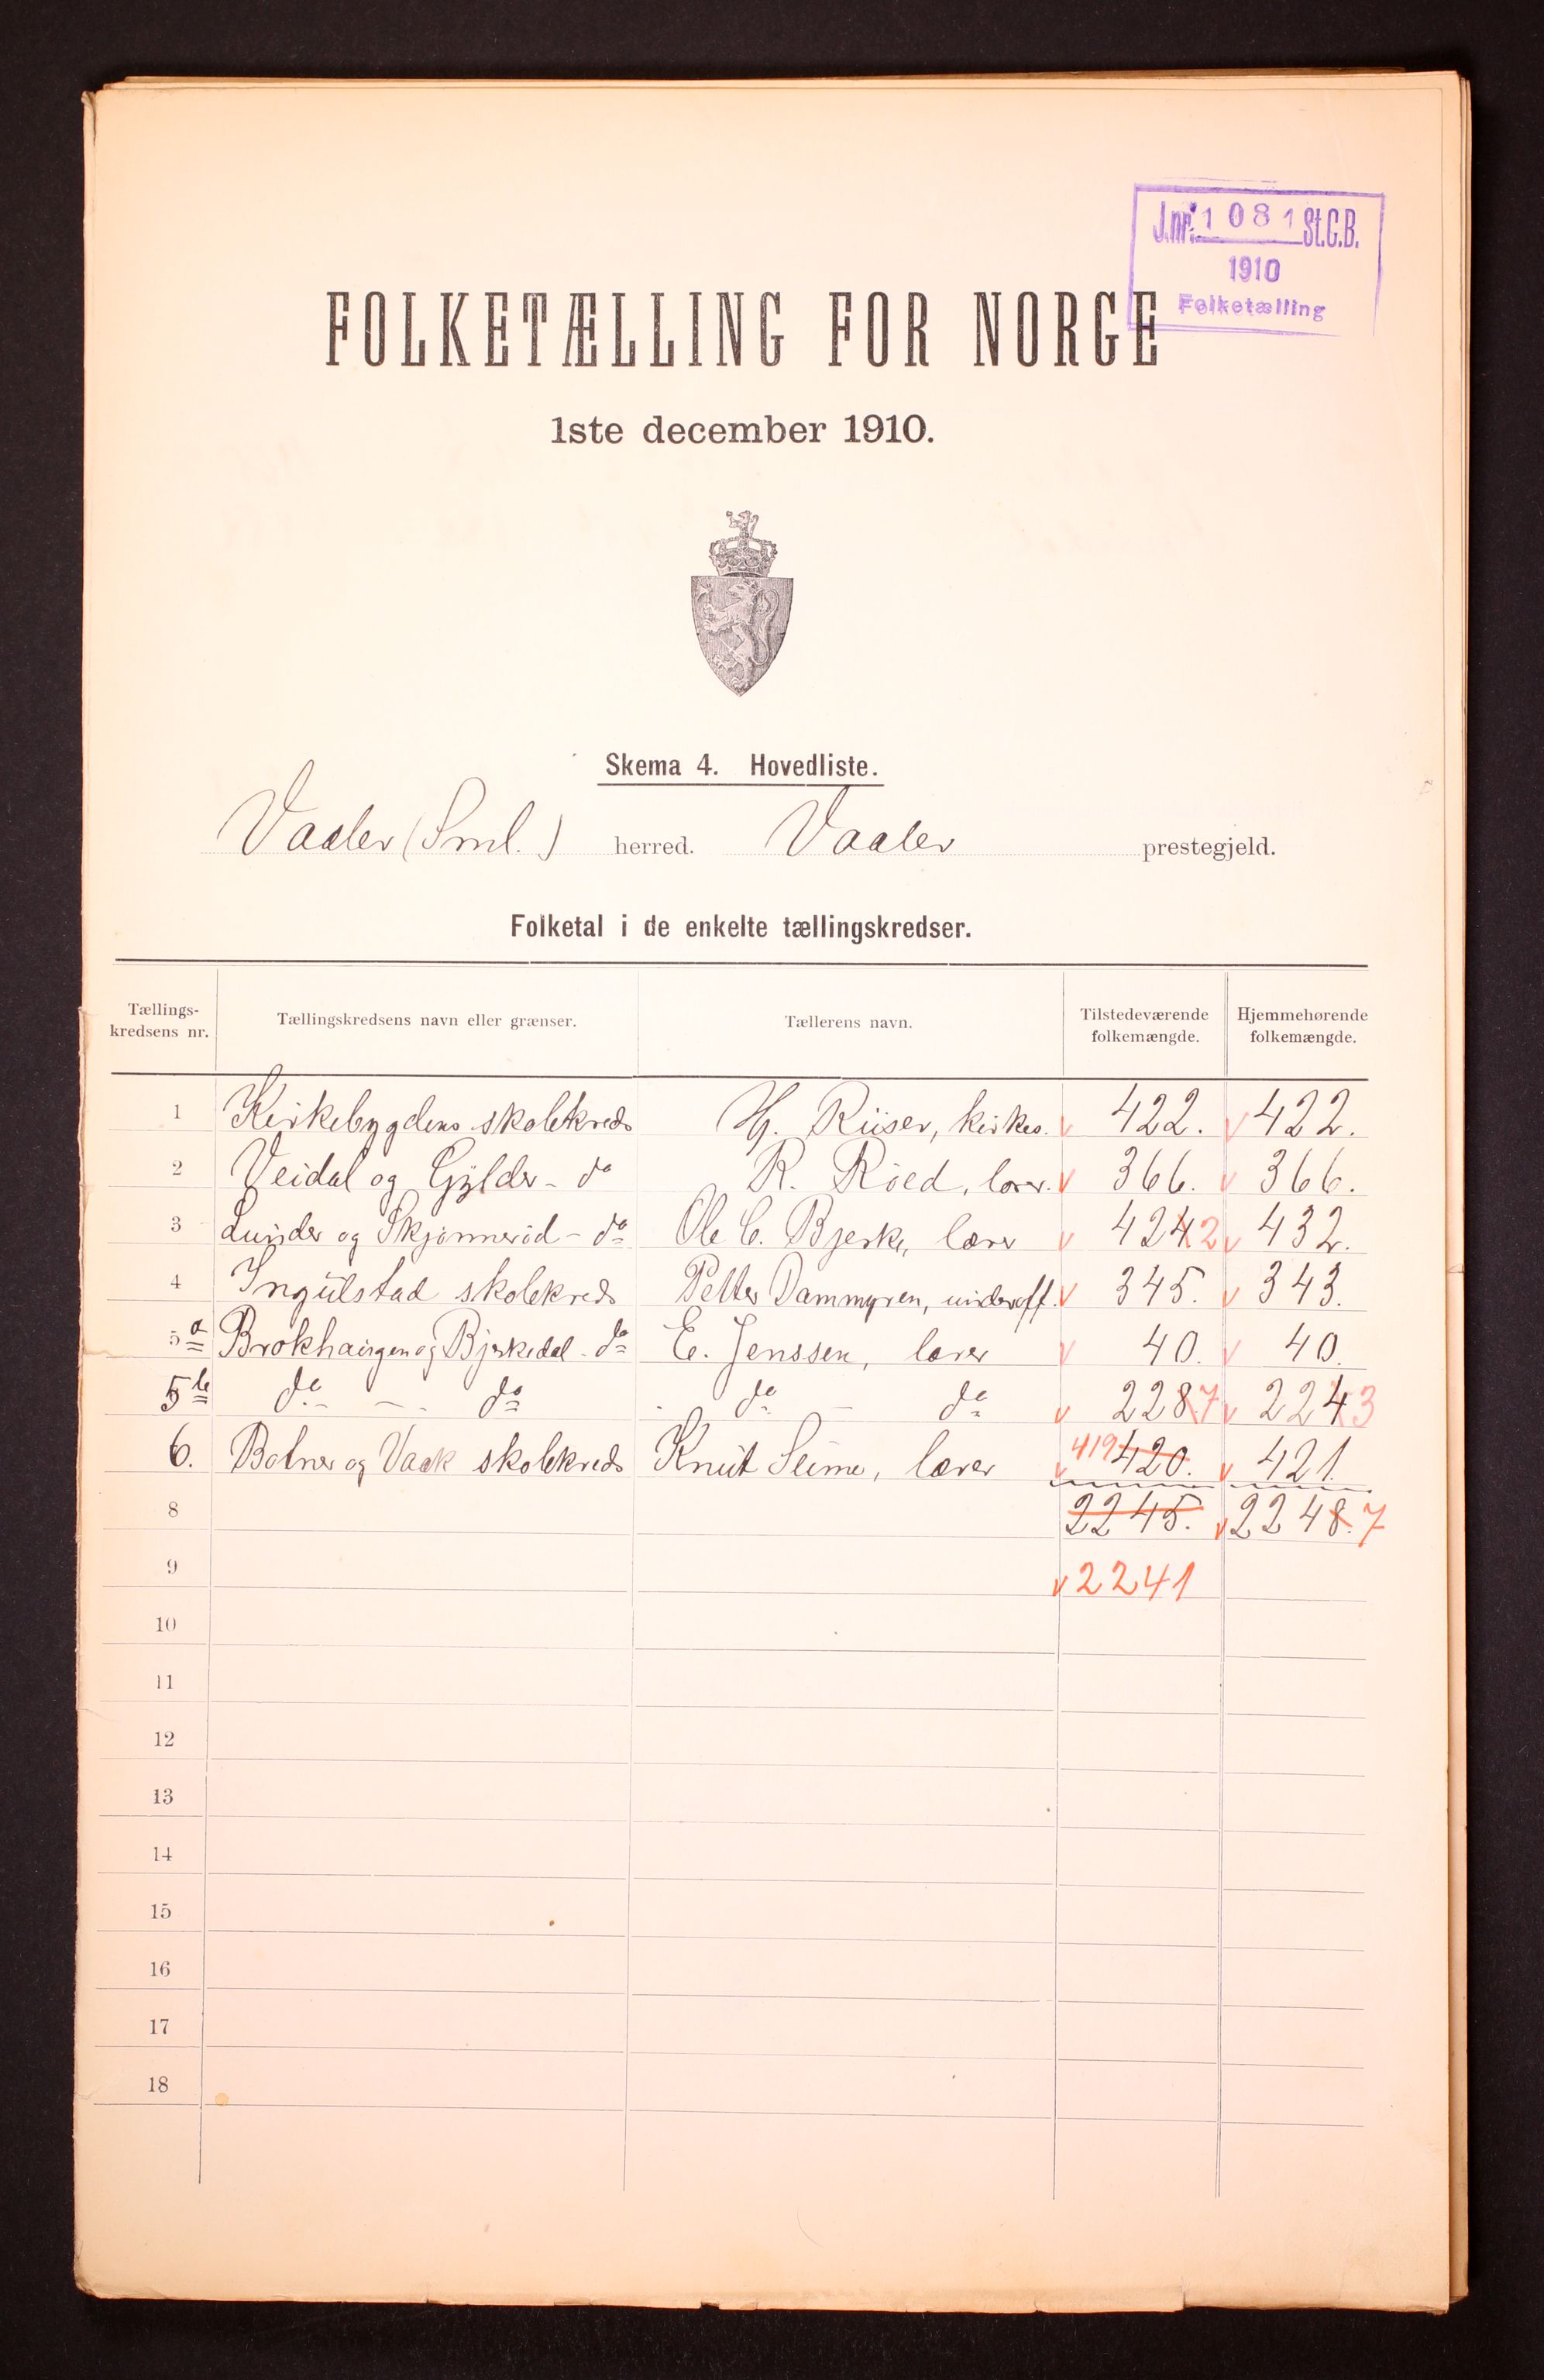 J.nr. 1081 St.C.B.
1910
Folketælling
FOLKETÆLLING FOR NORGE
1ste december 1910.
Skema 4. Hovedliste.
Vaaler (Sml.) herred. Vaaler prestegjeld.
Folketal i de enkelte tællingskredser.
Tællings-kredsens nr. Tællingskredsens navn eller grænser. Tællerens navn. Tilstedeværende folkemængde. Hjemmehørende folkemængde.
1 Kirkebygdens skolekreds Hj. Riiser, kirkes. v 422. v 422.
2 Veidal og Gylder - do R. Röed, lærer. v 366. v 366.
3 Lunder og Skjønneröd - do Ole C. Bjerke, lærer v 424 2 v 432.
4 Ingulstad skolekreds Petter Dammyren, underoff. v 345. v 343.
5a Brokhaugen og Bjerkedal - do E. Jenssen, lærer v 40. v 40.
5b do - do do - do v 228 7 v 224 3
6. Botner og Vaak skolekreds Knut Seime, lærer v 419 420. v 421.
8 2245. v 2248. 7
9 v 2241
10
11
12
13
14
15
16
17
18